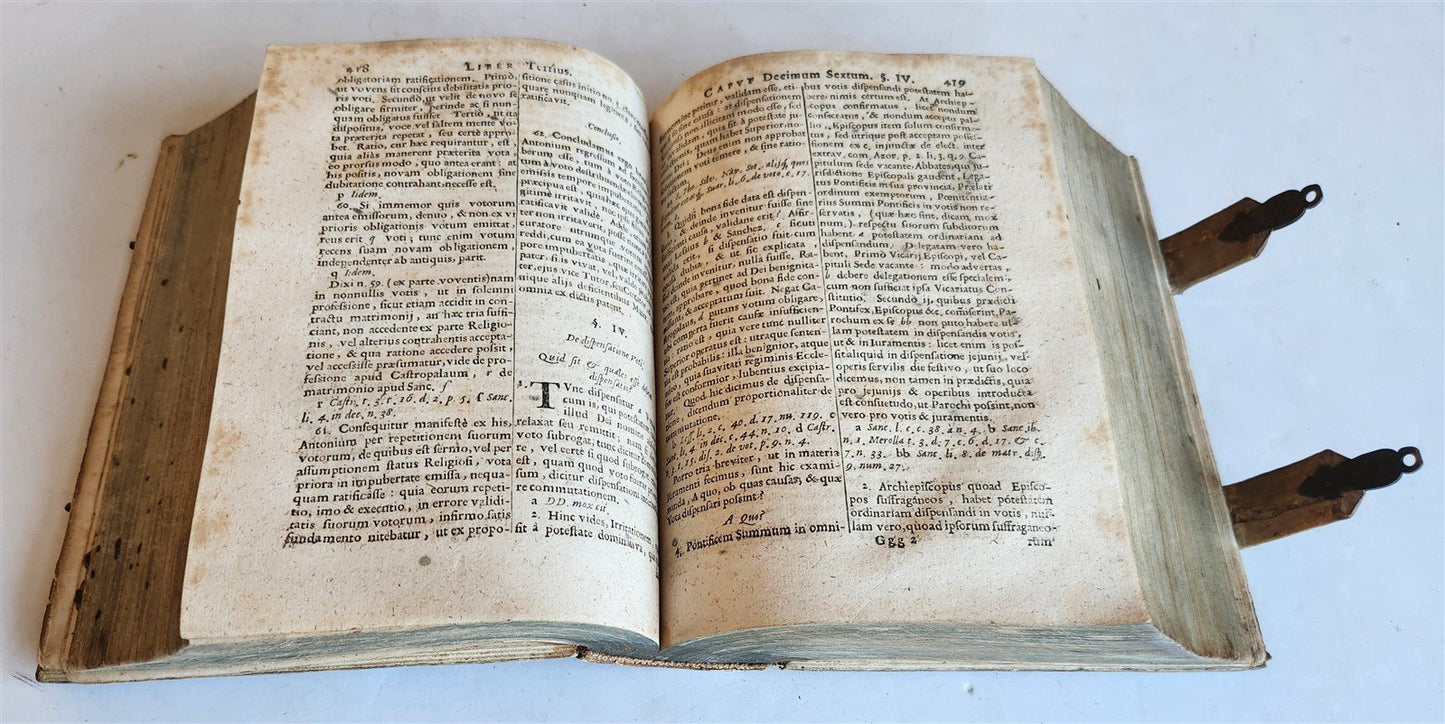 418
LIBER Tertius.
obligatoriam ratificationem. Primò,
ut vovens sit conscius debilitatis prio-
ris voti. Secundò, ut velit de novo se
obligare firmiter, perinde ac si nun-
quam obligatus fuisset. Tertiò, ut ita
dispositus, voce vel saltem mente vo-
ta præterita repetat, seu certè appro-
bet. Ratio, cur hæc requirantur, est,
quia aliàs manerent præterita vota,
eo prorsus modo, quo antea erant: at
his positis, novam obligationem sine
dubitatione contrahant, necesse est.
p Idem.
60. Si immemor quis votorum
antea emissorum, denuo, & non ex vi
prioris obligationis votum emittat,
reus erit q voti; tunc enim votum
recens suam novam obligationem,
independenter ab antiquis, parit.
q Idem.
Dixi n. 59. (ex parte voventis) nam
in nonnullis votis, ut in solemni
professione, sicut etiam accidit in con-
tractu matrimonij, an hæc tria suffi-
ciant, non accedente ex parte Religio-
nis, vel alterius contrahentis accepta-
tione, & qua ratione accedere possit,
vel accessisse præsumatur, vide de pro-
fessione apud Castropalaum, r de
matrimonio apud Sanc. ſ
r Castr. t. 3. r. 16. d. 2. p. 5. ſ Sanc.
li. 4. in dec. n. 38.
61. Consequitur manifestè ex his,
Antonium per repetitionem suorum
votorum, de quibus est sermo, vel per
assumptionem status Religiosi, vota
priora in impubertate emissa, nequa-
quam ratificâsse: quia eorum repeti-
tio, imo & executio, in errore validi-
tatis suorum votorum, infirmo satis
fundamento nitebatur, ut ex propo-
sitione casus initio
quare nunquam
ratificavit.
Conclusio.
62. Concludamus ergo
Antonium regressum
berum esse, tum à
tum à voto
emissis tempore
præcipua est,
gitimè irritavit,
ratificavit validè.
ter non irritaverit, posse
curatore utrumque
reddi, cum ea vota fuerint
pore impubertatis,
pater, si is vivat, vel
ter, ejus vice Tutor, seu
unque alijs deficientibus
omnia ex dictis patent.
§. IV.
De dispensatione Voti.
Quid sit & qualis esse
dispensatio?
1. TUnc dispensatur à
cum is, qui potestatem
illud Dei nomine
relaxat seu remittit,
voto subrogat; tunc dicitur
re, vel certè si quod
est, quam quod votum
sum, dicitur dispensationi
re commutationem.
a DD. mox cit.
2. Hinc vides, Irritationem
sit à potestate dominativa,
CAPUT Decimum Sextum. §. IV.
419
petitur, validam esse, eti-
sine causa: at dispensationem
non illicitam modo esse, sed
quia sit à potestate ju-
quam habet Superior, no-
Deus enim non approbat
voti temerè, & sine ratio-
Tho. Silv. Nav. Sot. alijq. quos
Suar. l. 6. de voto. c. 17.
Quid si bona fide data est dispen-
& deinde invenitur fuisse sine
causa, validane erit? Affir-
Lessius b & Sanchez. c sicut
si dispensatio fuit cum
dubia, & ut sic explicata,
deinde invenitur, nulla fuisse. Ra-
est, quia pertinet ad Dei benignita-
approbare, quod bona fide con-
& acceptatum fuit. Negat Ca-
stropalaus, d putans votum obligare,
comperta fuerit causæ insufficien-
ratio est, quia vere tunc nulliter
Superior operatus est: utraque senten-
est probabilis: illa benignior, atque
quia suavitati regiminis Eccle-
conformior, lubentius excipia-
Quod hic dicimus de dispensa-
dicendum proportionaliter de
commutatione.
b Less. li. 2. c. 40. d. 17. nu. 119. c
li. 4. in dec. c. 44. n. 10. d Castr.
t. 3. r. 15. dis. 2. de vot. p. 9. n. 4.
Porro tria breviter, ut in materia
Juramenti fecimus, sunt hic exami-
nanda, A quo, ob quas causas, & quæ
Vota dispensari possint?
A Quo?
4. Pontificem Summum in omni-
bus votis dispensandi potestatem ha-
bere, nimis certum est. At Archiep-
iscopus confirmatus, licet nondum
consecratus, & nondum accepto pal-
lio, Episcopus item solum confirma-
tus, sed utrique post acceptam posses-
sionem ex c. injunctæ de elect. inter
extrav. com. Azor. p. 2. li. 3. q. 9. Ca-
pitulum sede vacante. Abbates, qua ju-
risdictione Episcopali gaudent, Lega-
tus Pontificis in sua provincia, Prælati
ordinum exemptorum, Pœnitentia-
rius Summi Pontificis in votis non re-
servatis, (quæ hæc sint, dicam, mox
num.) respectu suorum subditorum
habent a potestatem ordinariam ad
dispensandum. Delegatam vero ha-
bent, Primò Vicarij Episcopi, vel Ca-
pituli Sede vacante: modo advertas,
b debere delegationem esse specialem;
cum non sufficiat ipsa Vicariatus Con-
stitutio. Secundò ij, quibus prædicti
Pontifex, Episcopus &c. comiserint, Pa-
rochum ex se bb non puto habere ul-
lam potestatem in dispensandis votis,
ut & in Iuramentis: licet enim is pos-
sit aliquid in dispensatione jejunij, vel
operis servilis die festivo, ut suo loco
dicemus, non tamen in prædictis, quia
pro jejunijs & operibus introducta
est consuetudo, ut Parochi possint, non
vero pro votis & juramentis.
a Sanc. l. c. c. 38. à n. 4. b Sanc. ib.
n. 1. Merolla t. 3. d. 7. c. 6. d. 17. & c.
7. n. 33. bb Sanc. li. 8. de matr. disp.
9. num. 27.
2. Archiepiscopus quoad Episco-
pos suffraganeos, habet potestatem
ordinariam dispensandi in votis, nul-
lam vero, quoad ipsorum suffraganeo-
Ggg 2
rum